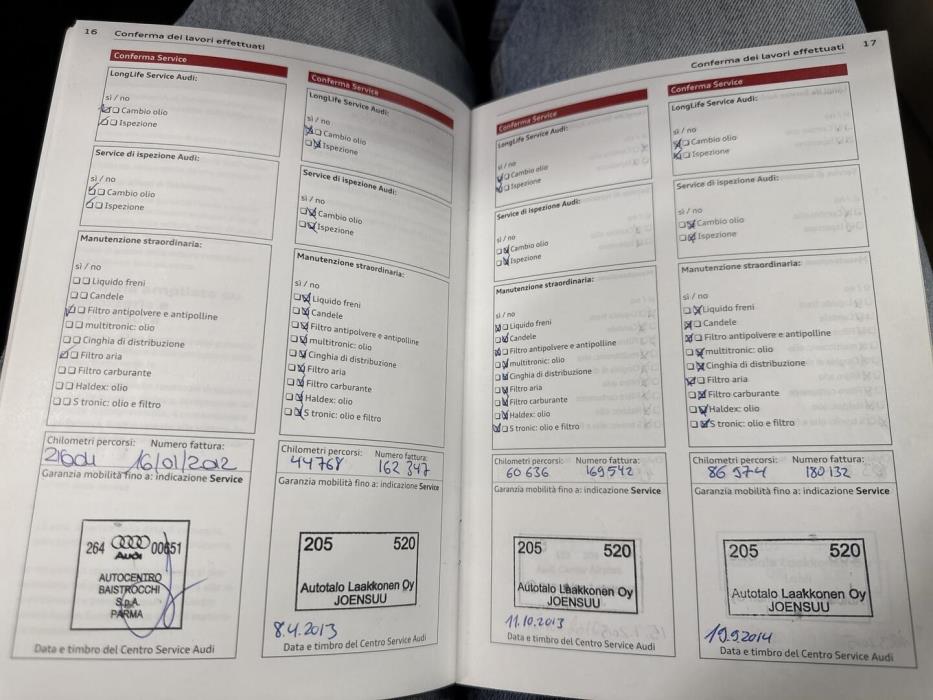 16 Conferma dei lavori effettuati
Conferma Service
LongLife Service Audi:
sì / no
Cambio olio
Ispezione
Service di ispezione Audi:
sì / no
Cambio olio
Ispezione
Manutenzione straordinaria:
sì / no
Liquido freni
Candele
Filtro antipolvere e antipolline
multitronic: olio
Cinghia di distribuzione
Filtro aria
Filtro carburante
Haldex: olio
S tronic: olio e filtro
Chilometri percorsi: Numero fattura:
16/01/2012
Garanzia mobilità fino a: indicazione Service
264 Audi 00651
AUTOCENTRO
BAISTROCCHI
S.p.A.
PARMA
Data e timbro del Centro Service Audi
Conferma Service
LongLife Service Audi:
sì / no
Cambio olio
Ispezione
Service di ispezione Audi:
sì / no
Cambio olio
Ispezione
Manutenzione straordinaria:
sì / no
Liquido freni
Candele
Filtro antipolvere e antipolline
multitronic: olio
Cinghia di distribuzione
Filtro aria
Filtro carburante
Haldex: olio
S tronic: olio e filtro
Chilometri percorsi: Numero fattura:
44768 162 347
Garanzia mobilità fino a: indicazione Service
205 520
Autotalo Laakkonen Oy
JOENSUU
8.4.2013
Data e timbro del Centro Service Audi
Conferma dei lavori effettuati 17
Conferma Service
LongLife Service Audi:
sì / no
Cambio olio
Ispezione
Service di ispezione Audi:
sì / no
Cambio olio
Ispezione
Manutenzione straordinaria:
sì / no
Liquido freni
Candele
Filtro antipolvere e antipolline
multitronic: olio
Cinghia di distribuzione
Filtro aria
Filtro carburante
Haldex: olio
S tronic: olio e filtro
Chilometri percorsi: Numero fattura:
60 636 169542
Garanzia mobilità fino a: indicazione Service
205 520
Autotalo Laakkonen Oy
JOENSUU
11.10.2013
Data e timbro del Centro Service Audi
Conferma Service
LongLife Service Audi:
sì / no
Cambio olio
Ispezione
Service di ispezione Audi:
sì / no
Cambio olio
Ispezione
Manutenzione straordinaria:
sì / no
Liquido freni
Candele
Filtro antipolvere e antipolline
multitronic: olio
Cinghia di distribuzione
Filtro aria
Filtro carburante
Haldex: olio
S tronic: olio e filtro
Chilometri percorsi: Numero fattura:
86 974 180132
Garanzia mobilità fino a: indicazione Service
205 520
Autotalo Laakkonen Oy
JOENSUU
19.9.2014
Data e timbro del Centro Service Audi